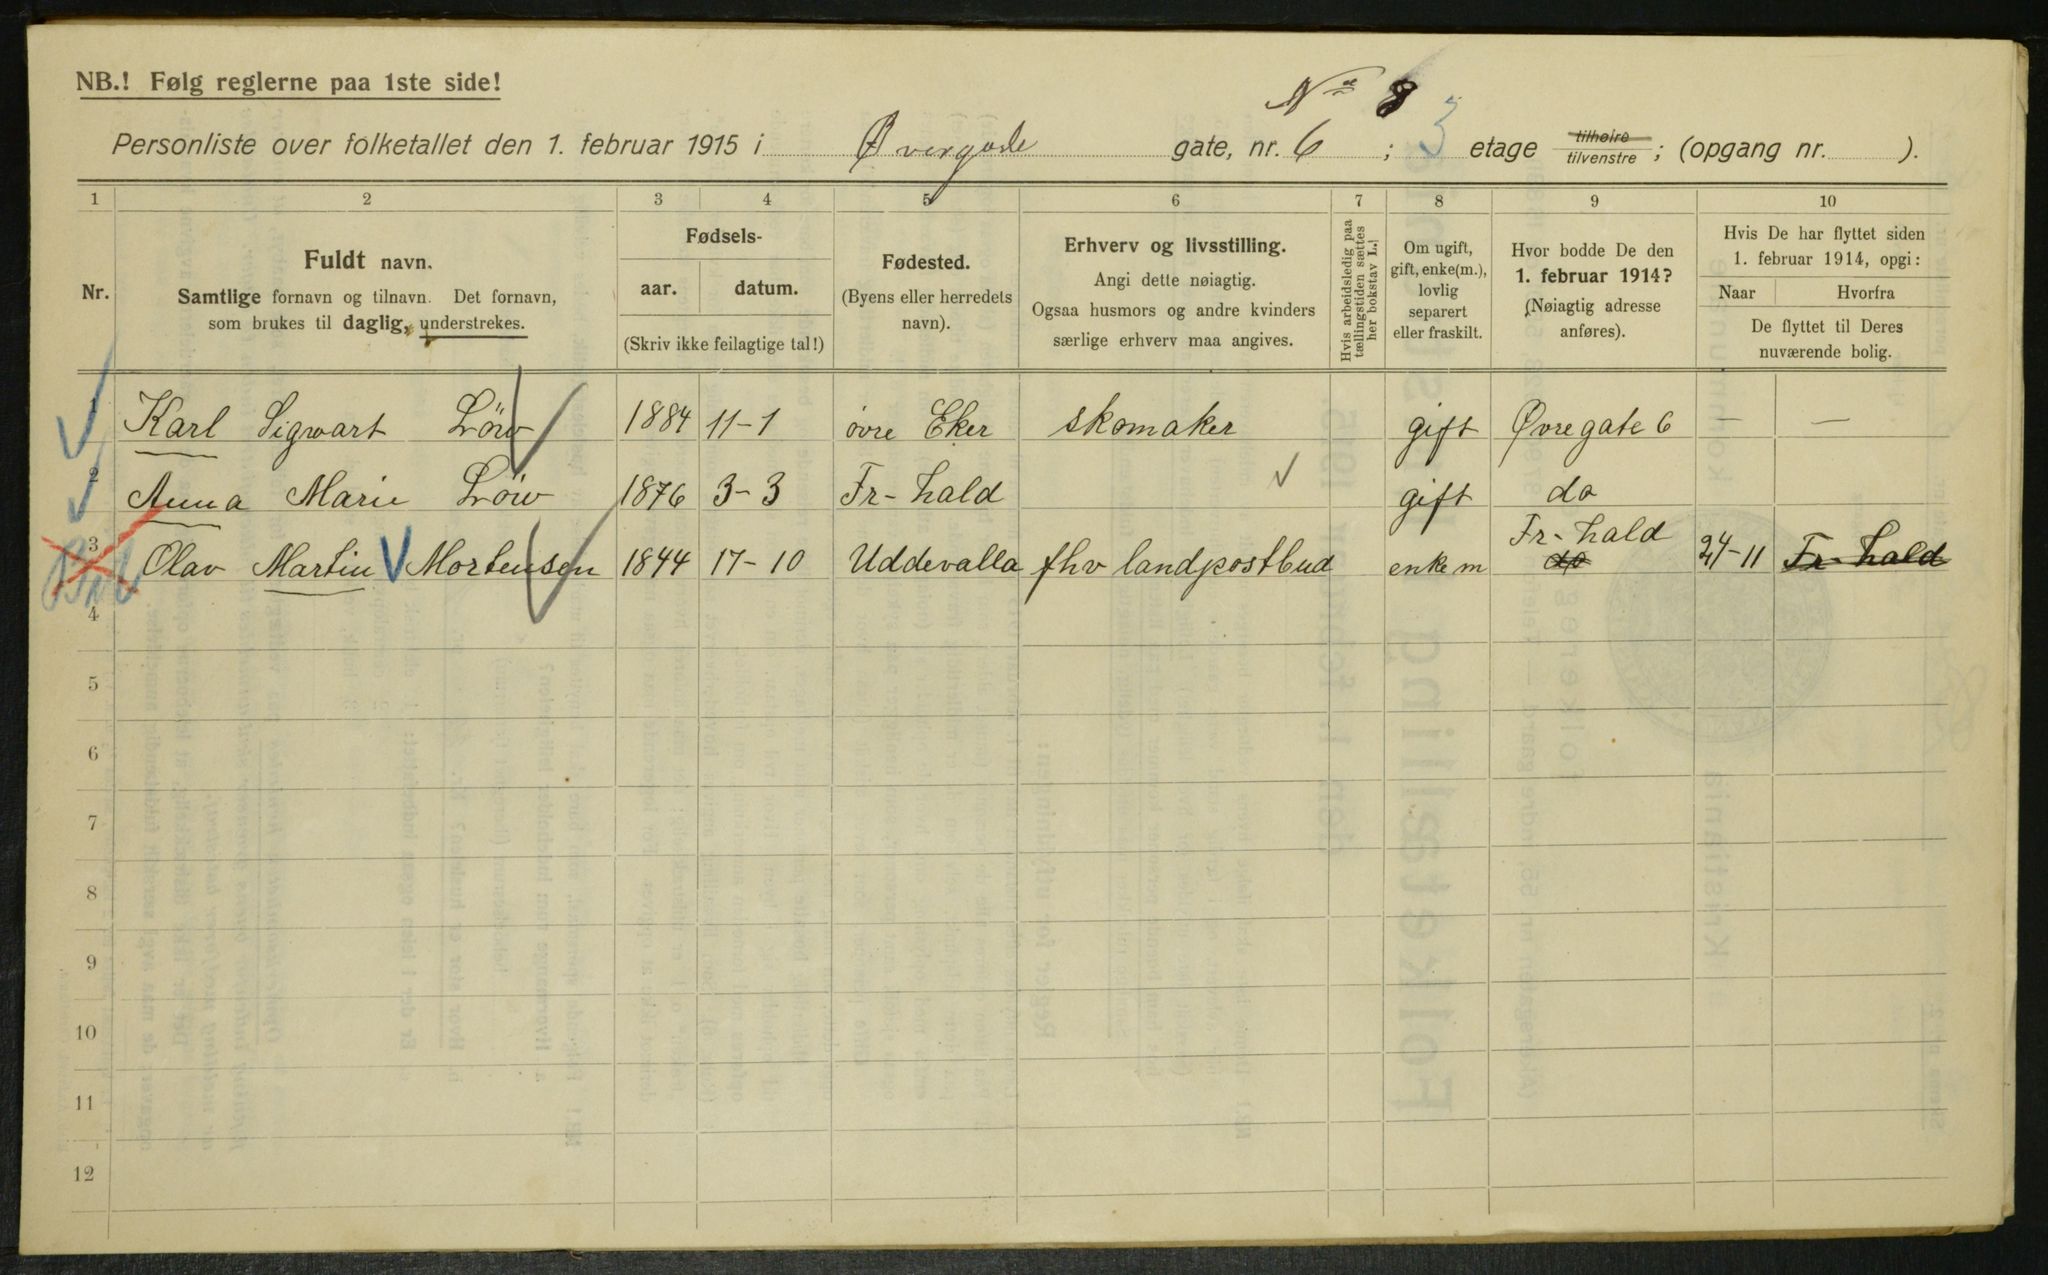 NB.! Følg reglerne paa 1ste side!
No 8 3
Personliste over folketallet den 1. februar 1915 i Øvregade gate, nr. 6 ; etage tilhøire tilvenstre ; (opgang nr. ).
1 2 3 4 5 6 7 8 9 10
Nr.
Fuldt navn.
Samtlige fornavn og tilnavn. Det fornavn,
som brukes til daglig, understrekes.
Fødsels-
aar. datum.
(Skriv ikke feilagtige tal!)
Fødested.
(Byens eller herredets
navn).
Erhverv og livsstilling.
Angi dette nøiagtig.
Ogsaa husmors og andre kvinders
særlige erhverv maa angives.
Hvis arbeidsledig paa
tællingstiden sættes
her bokstav L.!
Om ugift,
gift, enke(m.),
lovlig
separert
eller fraskilt.
Hvor bodde De den
1. februar 1914?
(Nøiagtig adresse
anføres).
Hvis De har flyttet siden
1. februar 1914, opgi:
Naar Hvorfra
De flyttet til Deres
nuværende bolig.
1 Karl Sigwart Löw 1884 11-1 øvre Eker skomaker gift Øvregate 6 — —
2 Anna Marie Löw 1876 3-3 Fr-hald gift do
3 Olav Martin Mortensen 1844 17-10 Uddevalla fhv landpostbud enkem Fr-hald do 24-11 Fr-hald
4
5
6
7
8
9
10
11
12